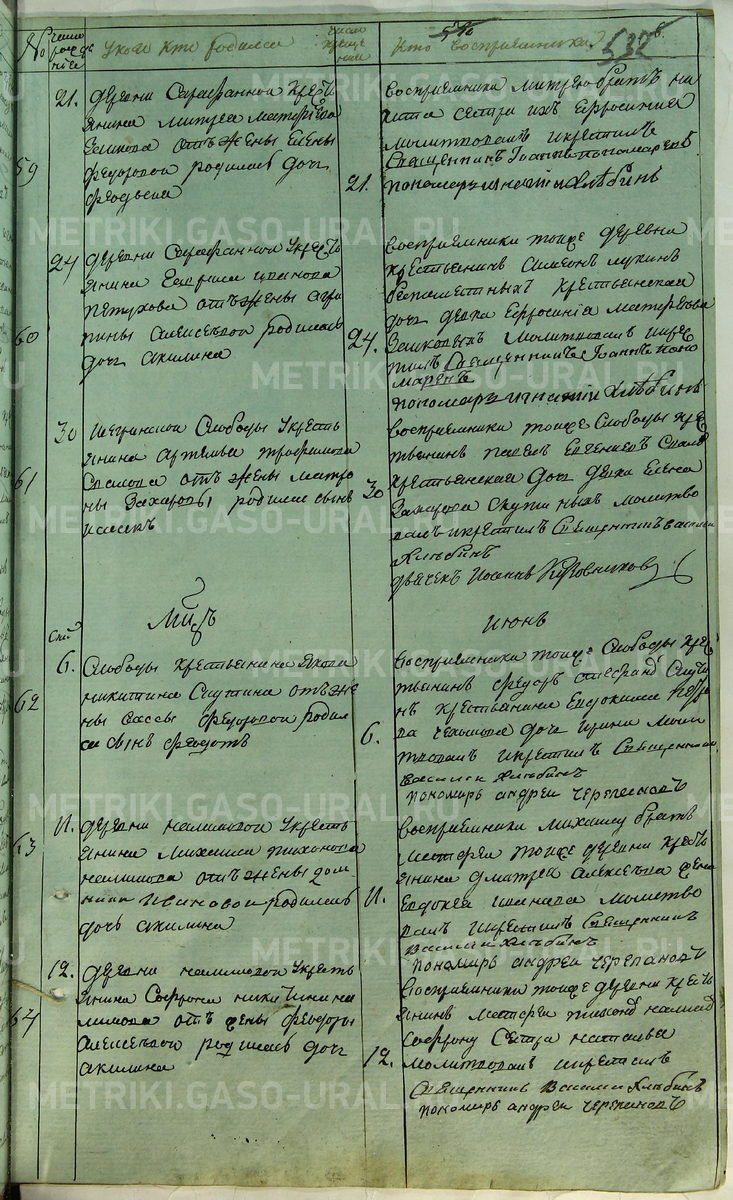 №
число рожденіе
У кого кто родился
число крещеніи
Кто восприемники
532
59
21.
деревни Сарафанной у кресть
янина Митрея Матфеева
Заикова отъ жены Елены
Федоровой родилась дочь
Феодосья
21.
восприемники Митрею братъ Ни
кита сестра ихъ Ефросиниа
молитвовалъ и крестилъ
Священникъ Іоаннъ Пономаревъ
пономарь Игнатій Хлѣбинъ
60
24
деревни Сарафанной у кресть
янина Гаврила Иванова
Петухова отъ жены Агри
пины Алексѣевой родилась
дочь Акилина
24.
восприемники тоиже деревни
крестьянинъ Симеонъ Лукинъ
безпоместныхъ крестьянская
дочь девка Ефросиніа Матфеева
Заиковыхъ молитвовалъ и крес
тилъ Священникъ Іоаннъ Поно
маревъ
пономарь Игнатій Хлѣбинъ
61
30
слободы у кресть
янина Артемья Трофимова
отъ жены Матро
ны Захаровы родился сынъ
Исаакъ
30
восприемники тоиже слободы кре
тьянинъ Павелъ
крестьянская дочь девка Елена
Захарова молитво
валъ и крестилъ Священникъ Василии
Хлѣбинъ
дьячекъ Иоаннъ
Мцъ
июнь
62
6.
Слободы крестьянина Якова
Никитина отъ же
ны Вассы Федоровой родил
ся сынъ Феодотъ
6.
восприемники тоиже слободы крес
тьянинъ Федоръ
крестьянина Евдокима
дочь Ирина моли
твовалъ и крестилъ Священникъ
Василии Хлѣбинъ
пономарь Андреи Черепановъ
63
11.
деревни Налимовой у кресть
янина Михаила Тихонова
Налимова отъ жены Дом
ники Ивановой родилась
дочь Акилина
11.
восприемники Михаилу братъ
Матфеи тоиже деревни кресть
янина Дмитрея Алексѣева жена
Евдокея Иванова молитво
валъ и крестилъ Священникъ
Василии Хлѣбинъ
пономарь Андреи Черепановъ
64
12.
деревни Налимовой у кресть
янина Софрона Никитина На
лимова отъ жены Феодоры
Алексѣевой родилась дочь
Акилина
12.
восприемники тоиже деревни кресть
янинъ Матфеи Тихоновъ Налимовъ
Софрону сестра Наталья
молитвовалъ и крестилъ
Священникъ Василии Хлѣбинъ
пономарь Андреи Черепановъ
METRIKI.GASO-URAL.RU